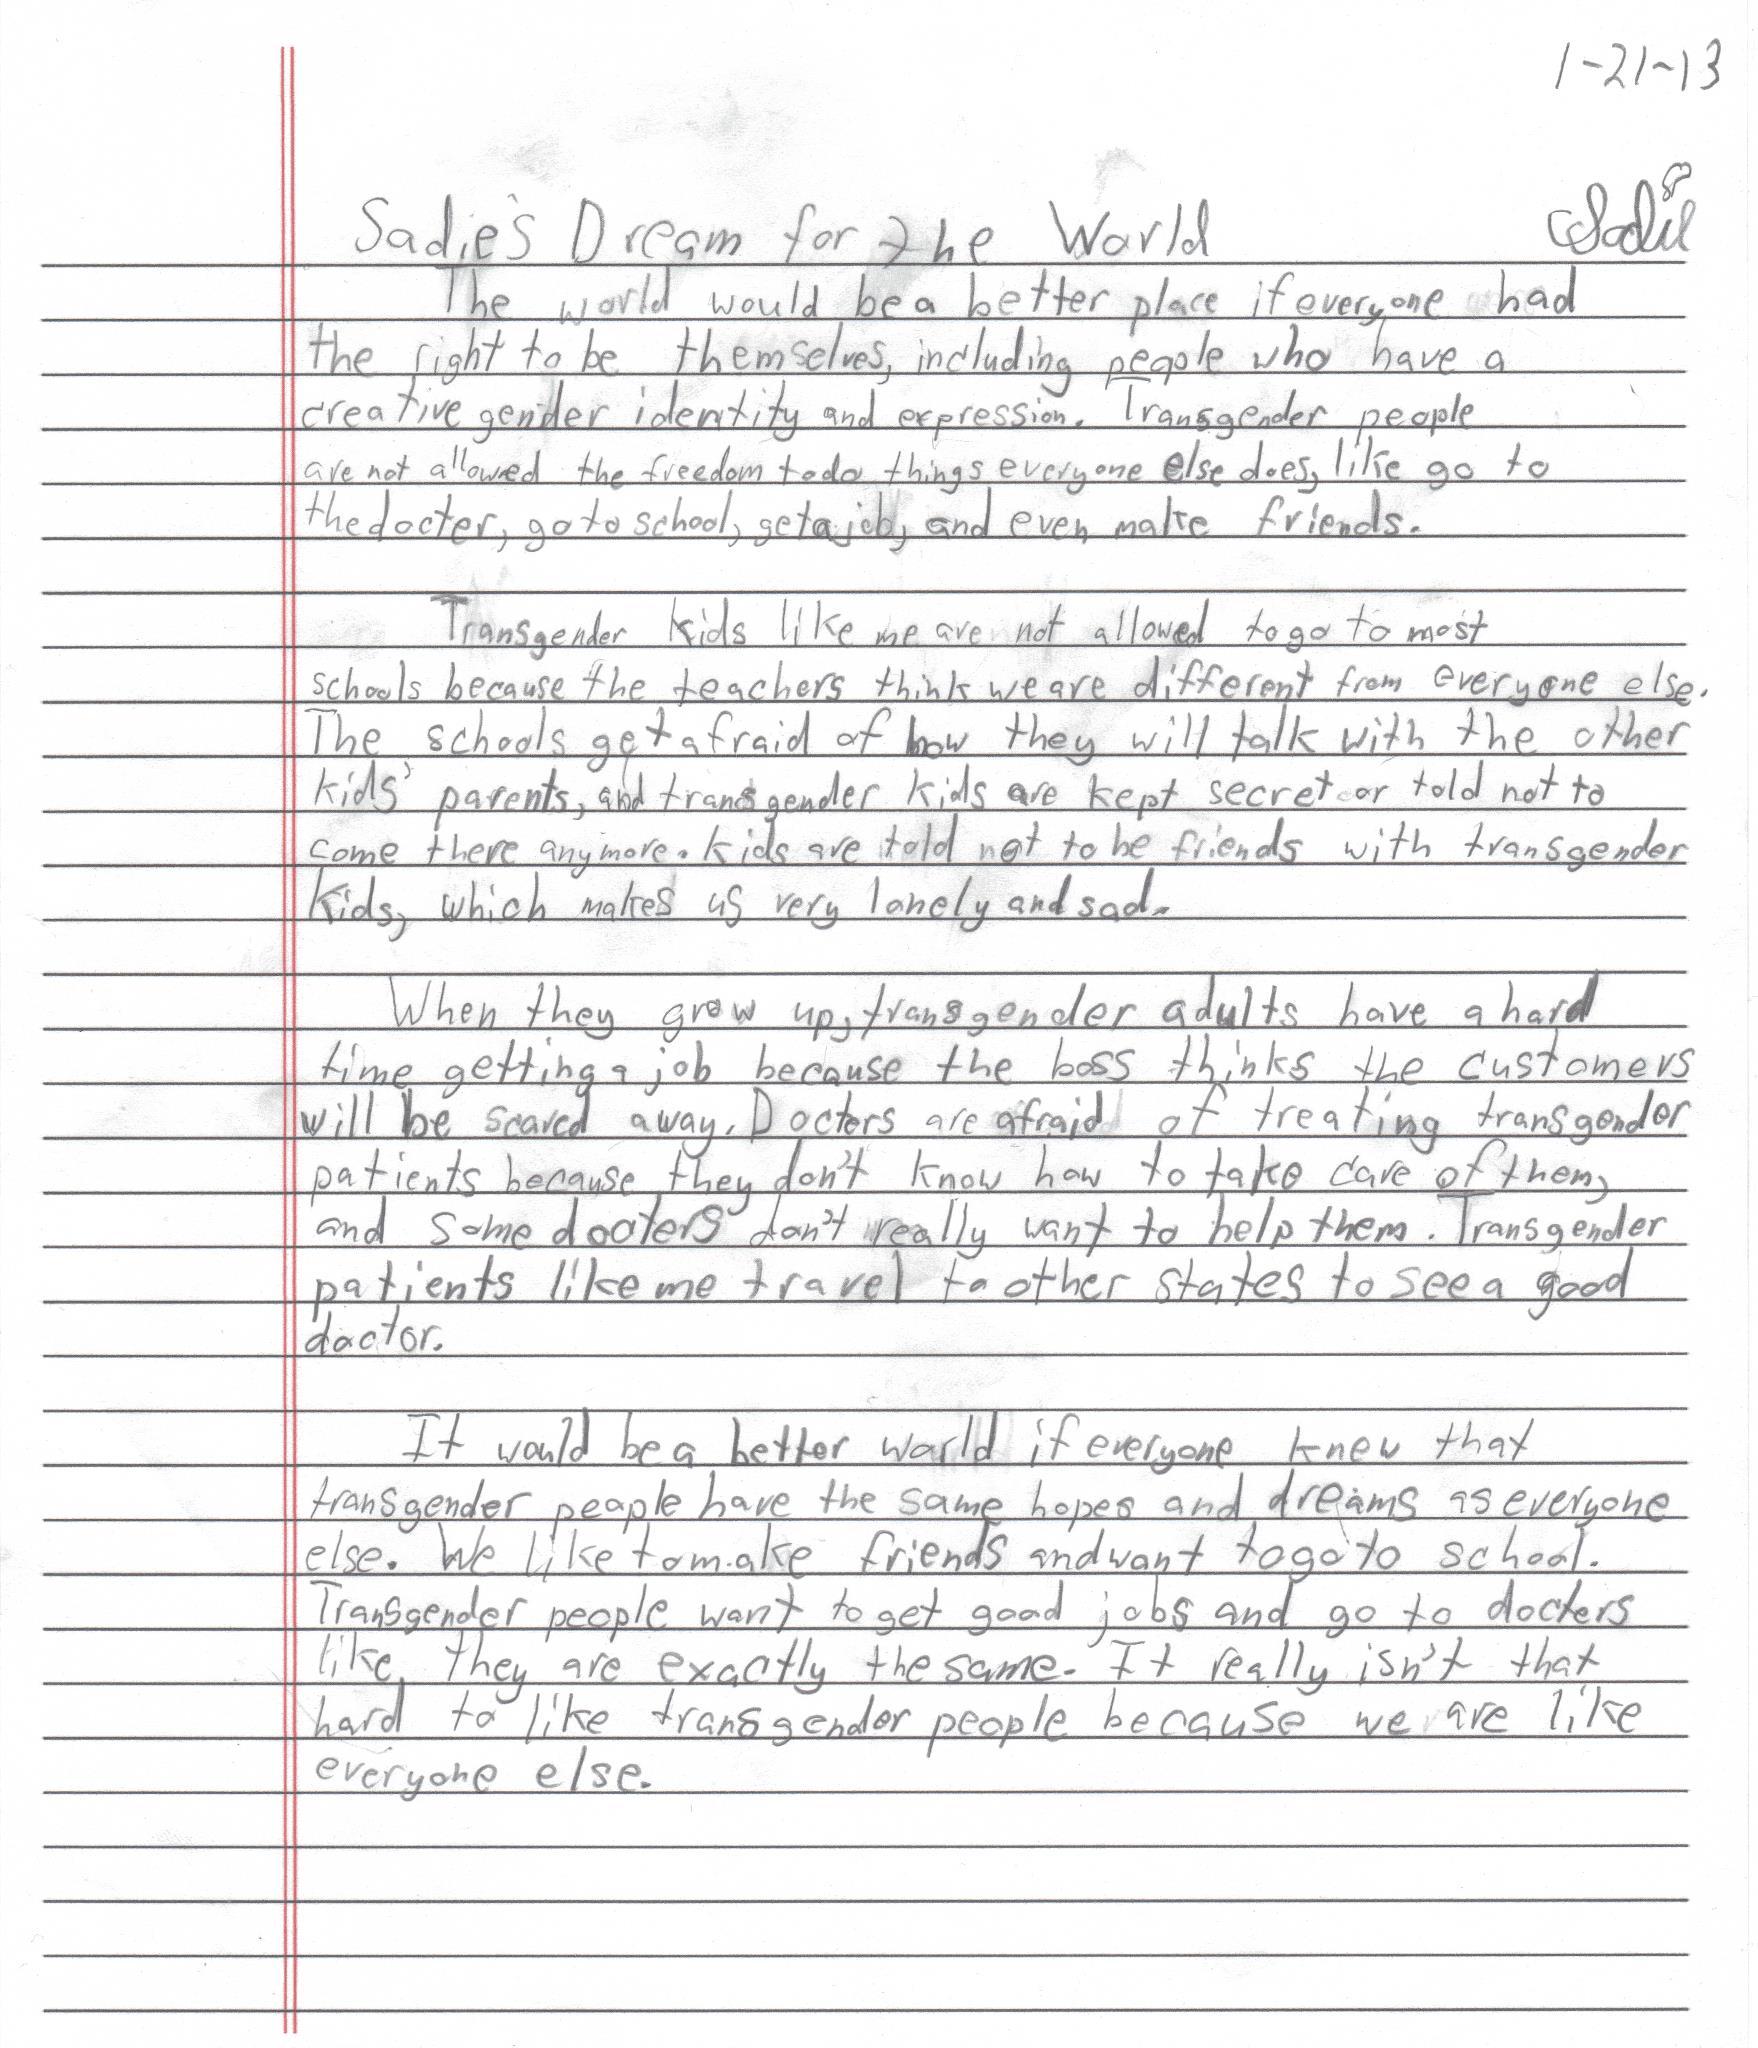 1-21-13
Sadie's Dream for the World Sadie
The world would be a better place if everyone had
the right to be themselves, including people who have a
creative gender identity and expression. Transgender people
are not allowed the freedom to do things everyone else does, like go to
the docter, go to school, get a job, and even make friends.
Transgender kids like me are not allowed to go to most
schools because the teachers think we are different from everyone else.
The schools get afraid of how they will talk with the other
kids' parents, and transgender kids are kept secret or told not to
come there anymore. Kids are told not to be friends with transgender
kids, which makes us very lonely and sad.
When they grow up, transgender adults have a hard
time getting a job because the boss thinks the customers
will be scared away. Doctors are afraid of treating transgender
patients because they don't know how to take care of them,
and some docters don't really want to help them. Transgender
patients like me travel to other states to see a good
doctor.
It would be a better world if everyone knew that
transgender people have the same hopes and dreams as everyone
else. We like to make friends and want to go to school.
Transgender people want to get good jobs and go to docters
like they are exactly the same. It really isn't that
hard to like transgender people because we are like
everyone else.